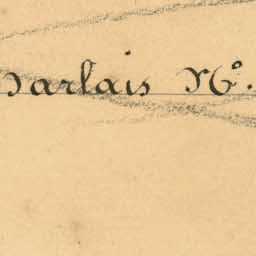 arlais Nº.